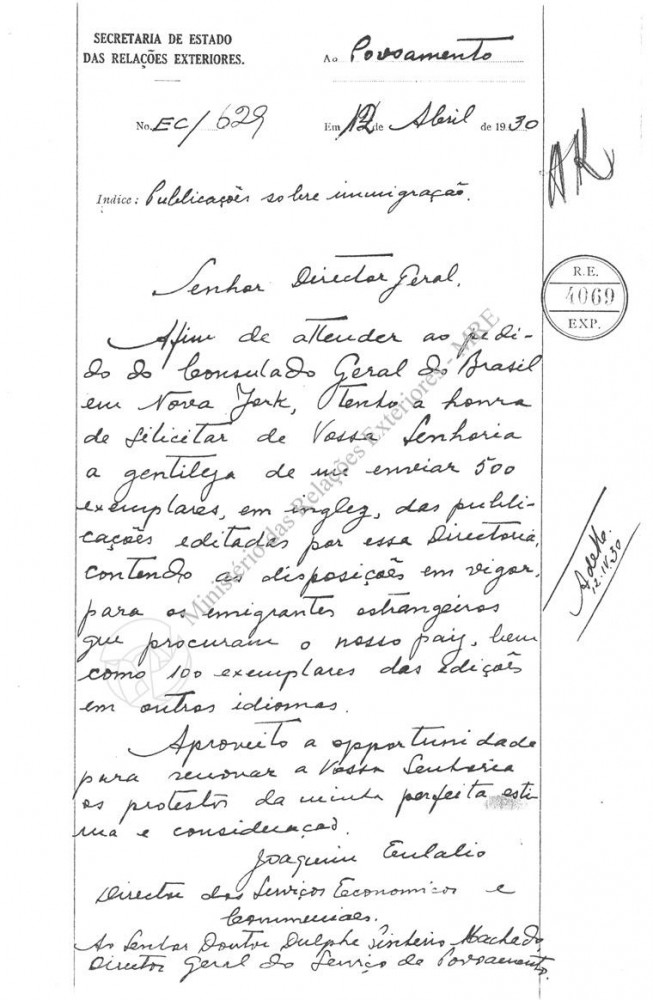 SECRETARIA DE ESTADO
DAS RELAÇÕES EXTERIORES.
Ao Povoamento
No. EC/ 629
Em 12 de Abril de 1930
Indice: Publicações sobre immigração.
R. E.
4069
EXP.
Senhor Director Geral.
Afim de attender ao pedi-
do do Consulado Geral do Brasil
em Nova York, tenho a honra
de silicitar de Vossa Senhoria
a gentileza de me enviar 500
exemplares, em inglez, das publi-
cações editadas por essa Directoria,
contendo as disposições em vigor,
para os emigrantes estrangeiros
que procuram o nosso paiz, bem
como 100 exemplares das edições
em outros idiomas.
12.IV.30
Aproveito a opportunidade
para renovar a Vossa Senhoria
os protestos da minha perfeita esti-
ma e consideração.
Joaquim Eulalio
Director dos Serviços Economicos e
Commerciaes.
Ao Senhor Doutor Dulphe Pinheiro Machado,
Director Geral do Serviço de Povoamento.
Ministério das Relações Exteriores - MRE